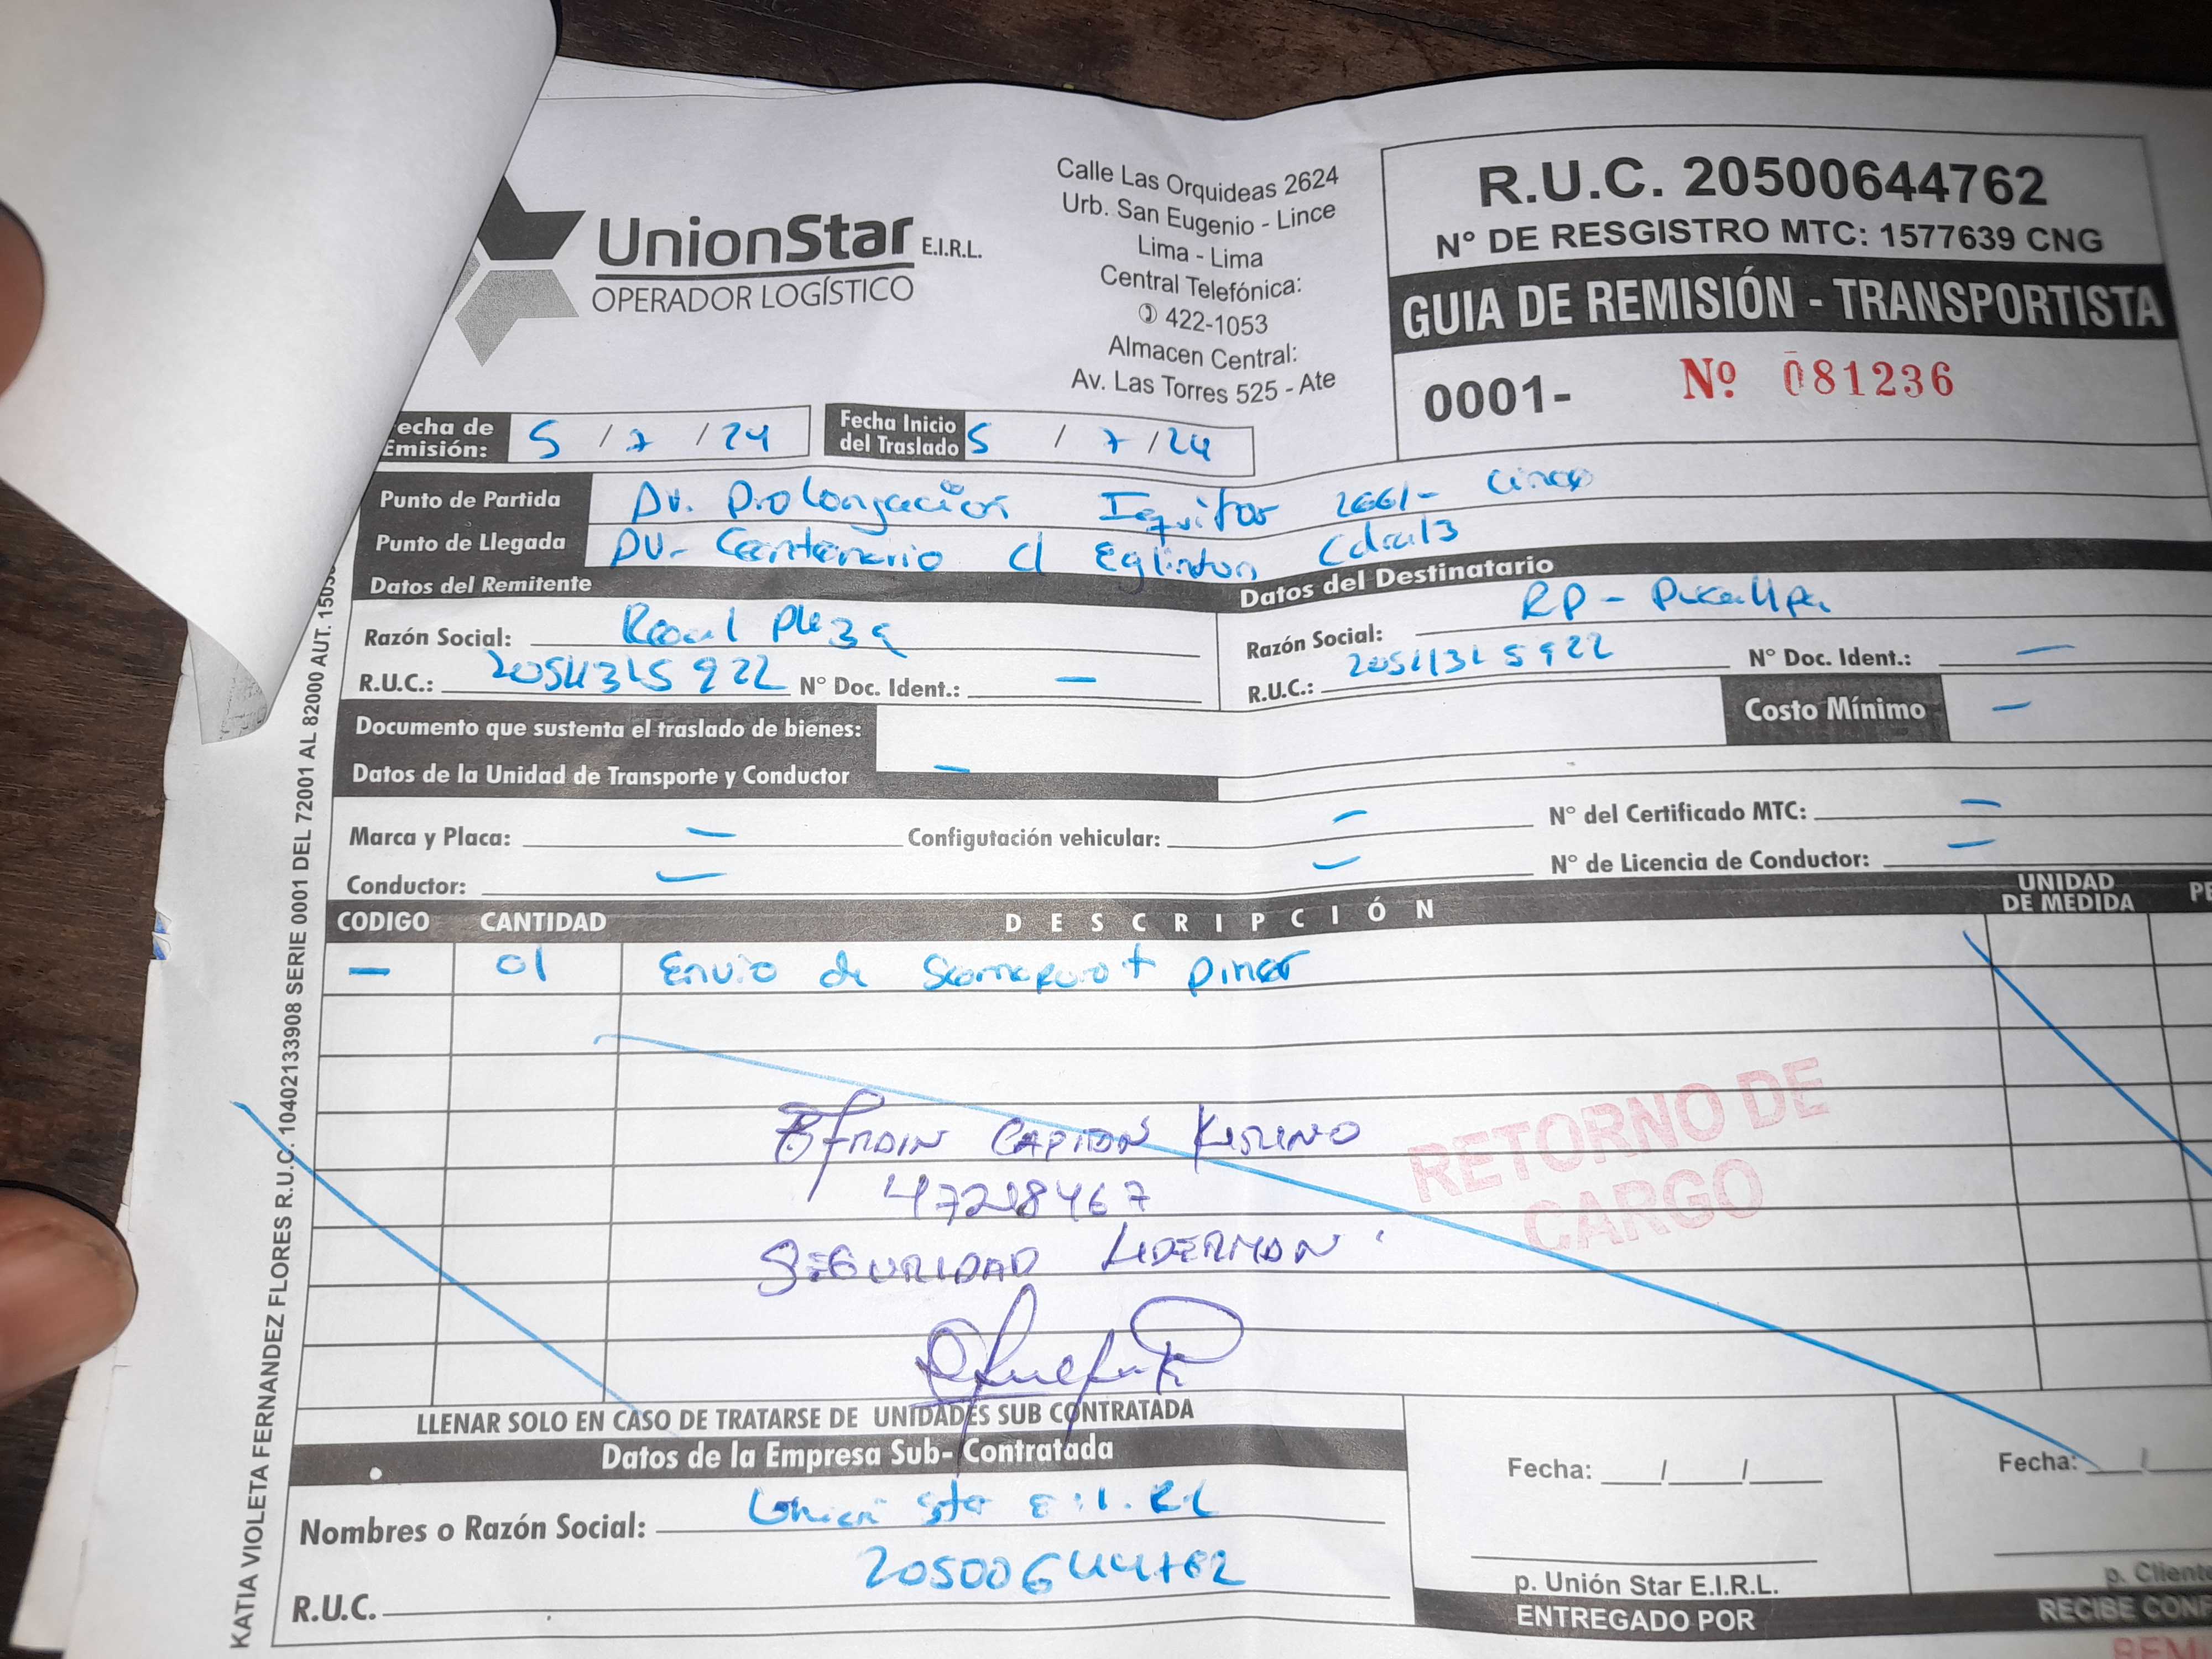 UnionStar E.I.R.L.
OPERADOR LOGÍSTICO
Calle Las Orquideas 2624
Urb. San Eugenio - Lince
Lima - Lima
Central Telefónica:
422-1053
Almacen Central:
Av. Las Torres 525 - Ate
R.U.C. 20500644762
N° DE RESGISTRO MTC: 1577639 CNG
GUIA DE REMISIÓN - TRANSPORTISTA
0001- Nº 081236
echa de Emisión: 5 / 7 / 24
Fecha Inicio del Traslado 5 / 7 / 24
Punto de Partida Av. Prolongación Iquitos 2661-
Punto de Llegada AV- Centenario c/ Eglinton
Datos del Remitente
Razón Social: Real Plaza
R.U.C.: N° Doc. Ident.: —
Datos del Destinatario
Razón Social: RP - Pucallpa
R.U.C.: N° Doc. Ident.: —
Documento que sustenta el traslado de bienes: —
Costo Mínimo —
Datos de la Unidad de Transporte y Conductor
Marca y Placa: — Configutación vehicular: — N° del Certificado MTC: —
Conductor: — — N° de Licencia de Conductor: —
CODIGO CANTIDAD DESCRIPCIÓN UNIDAD DE MEDIDA PE
— 01 Envio de
EFRAIN
47218467
SEGURIDAD LIDERMAN
RETORNO DE
CARGO
LLENAR SOLO EN CASO DE TRATARSE DE UNIDADES SUB CONTRATADA
Datos de la Empresa Sub- Contratada
Nombres o Razón Social: Union Star E.I.RL
R.U.C. 20500644762
Fecha: ___/___/___
p. Unión Star E.I.R.L.
ENTREGADO POR
Fecha: ___/
p. Cliente
RECIBE CONF
KATIA VIOLETA FERNANDEZ FLORES R.U.C. 10402133908 SERIE 0001 DEL 72001 AL 82000 AUT.